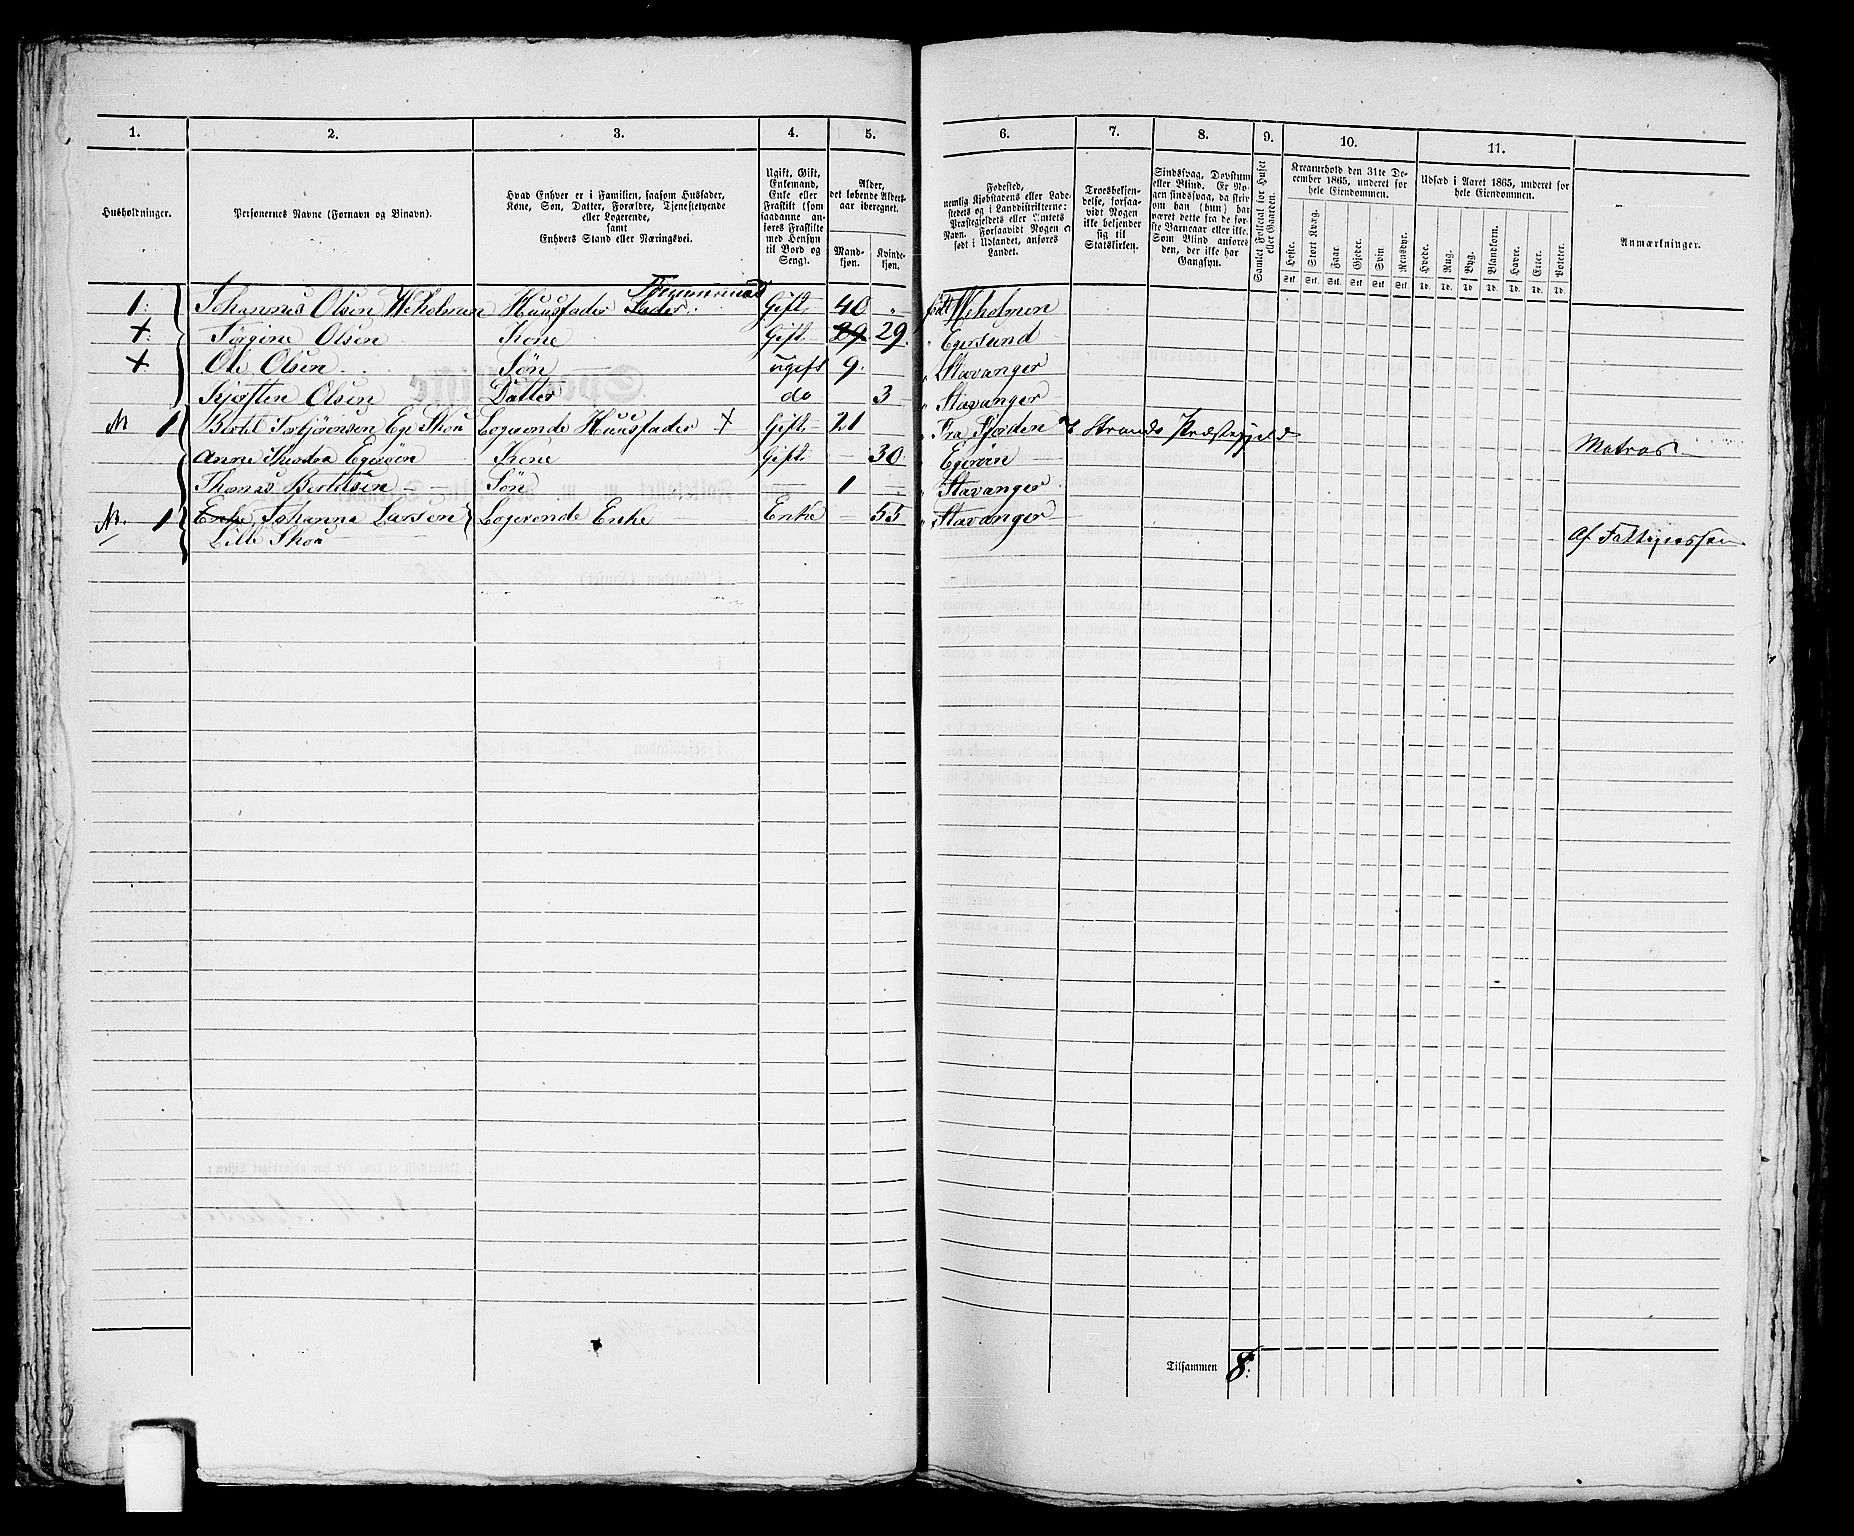 1. 2. 3. 4. 5. 6. 7. 8. 9. 10. 11.
Husholdninger.
Personernes Navne (Fornavn og Binavn).
Hvad Enhver er i Familien, saasom Husfader,
Kone, Søn, Datter, Forældre, Tjenestetyende
eller Logerende,
samt
Enhvers Stand eller Næringsvei.
Ugift, Gift,
Enkemand,
Enke eller
Fraskilt (som
saadanne an-
føres Fraskilte
med Hensyn
til Bord og
Seng).
Alder,
det løbende Alders-
aar iberegnet.
Mand-
kjøn.
Kvinde-
kjøn.
Fødested,
nemlig Kjøbstadens eller Lade-
stedets og i Landdistrikterne:
Præstegjeldets eller Amtets
Navn. Forsaavidt Nogen er
født i Udlandet, anføres
Landet.
Troesbekjen-
delse, forsaa-
vidt Nogen
ikke bekjender
sig til
Statskirken.
Sindssvag, Døvstum
eller Blind. Er No-
gen sindssvag, da skri-
ves om han (hun) har
været dette fra de før-
ste Barneaar eller ikke.
Som Blind anføres
den, der ikke har
Gangsyn.
Samlet Folketal for Huset
eller Gaarden.
Kreaturhold den 31te De-
cember 1865, underet for
hele Eiendommen.
Heste. Stort Kvæg. Faar. Gjeder. Svin. Rensdyr.
Stk. Stk. Stk. Stk. Stk. Stk.
Udsæd i Aaret 1865, underet for
hele Eiendommen.
Hvede. Rug. Byg. Blandkorn. Havre. Erter. Poteter.
Td. Td. Td. Td. Td. Td. Td.
Anmærkninger.
Tømmermand
1. Johannes Olsen Weholmen Huusfader Fader. Gift. 40 „ født Weholmen
+ Tørgine Olsen Kone Gift. 29. 29. „ Egersund
+ Ole Olsen Søn ugift 9. „ Stavanger
Kjersten Olsen Datter do 3 „ Stavanger
M 1 Bertel Torbjørensen Eg. Skou Logerende Huusfader + Gift. 21 „ Fra Fjorden Strands Præstegjeld
Anne Egerøen Kone Gift. 30 „ Egerøen Matros
Thomas Bertelsen Søn 1 „ Stavanger
M. 1 Enke Johanna Larsen Logerende Enke Enke 55 „ Stavanger
Lille Skou Af
Tilsammen 8.